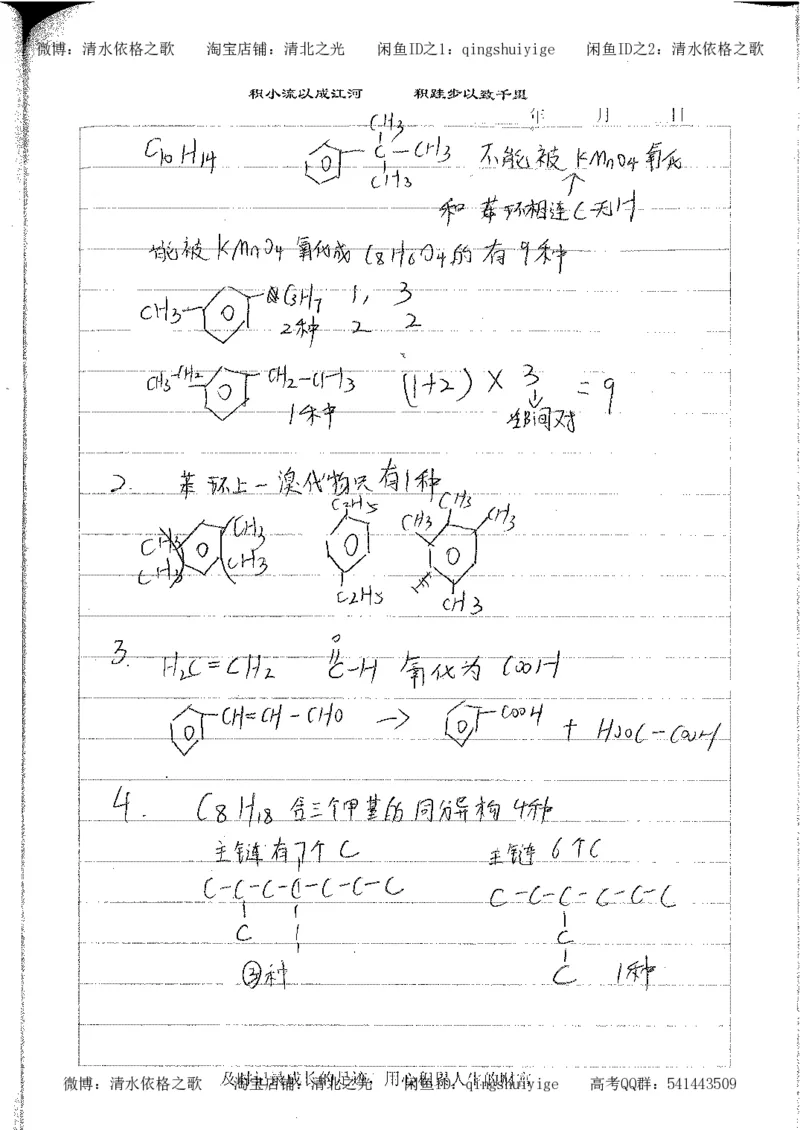 微博：清水依格之歌 淘宝店铺：清北之光 闲鱼ID之1：qingshuiyige 闲鱼ID之2：清水依格之歌
积小流以成江河 积跬步以致千里
年 月 日
C10H14 CH3 C CH3 CH3 不能被 KMnO4 氧化
和苯环相连C无H
能被 KMnO4 氧化成 C8H6O4的有9种
CH3 C3H7 1, 3
2种 2 2
CH3-CH2 CH2-CH3 (1+2) × 3 = 9
1种 邻间对
2. 苯环上一溴代物只有1种
CH3 CH3 CH3 CH3 C2H5 C2H5 CH3 CH3 CH3 H CH3
3. H2C=CH2 O C-H 氧化为 COOH
CH=CH-CHO → COOH + HOOC-COOH
4. C8H18 含三个甲基的同分异构 4种
主链有7个C 主链 6个C
C-C-C-C-C-C-C C-C-C-C-C-C
C C
③种 C 1种
微博：清水依格之歌 淘宝店铺：清北之光 闲鱼ID：qingshuiyige 高考QQ群：541443509